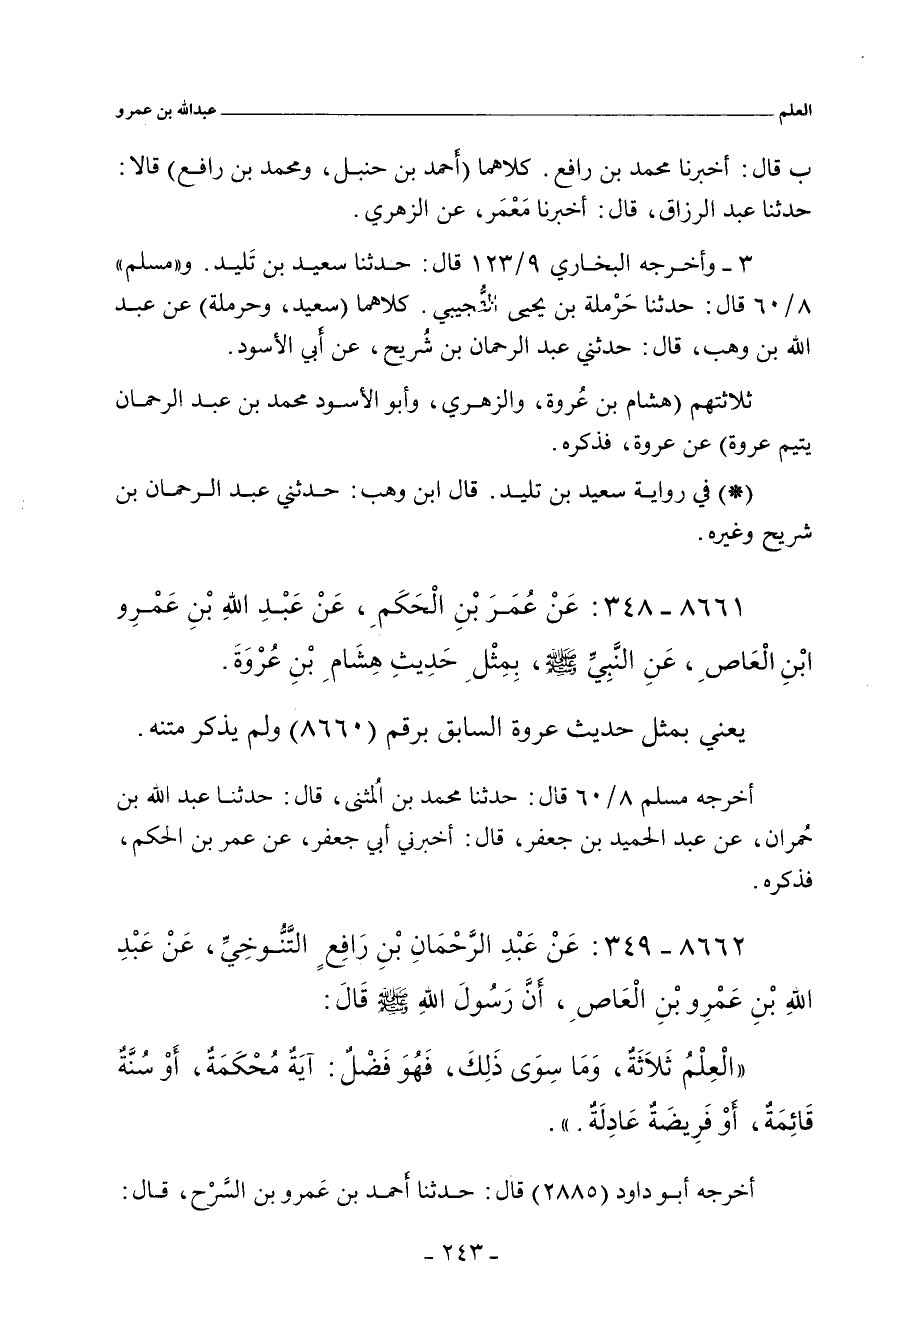 العلم ــــــــــــــــــــ عبدالله بن عمرو
ب قال: أخبرنا محمد بن رافع. كلاهما (أَحمد بن حنبل، ومحمد بن رافع) قالا:
حدثنا عبد الرزاق، قال: أخبرنا مَعْمَر، عن الزهري.
٣ ـ وأخرجه البخاري ١٢٣/٩ قال: حدثنا سعيد بن تَليد. و«مسلم»
٦٠/٨ قال: حدثنا حَرْملة بن يحيى التُّجيبي. كلاهما (سعيد، وحرملة) عن عبد
الله بن وهب، قال: حدثني عبد الرحمان بن شُريح، عن أَبي الأسود.
ثلاثتهم (هشام بن عُروة، والزهري، وأبو الأسود محمد بن عبد الرحمان
يتيم عروة) عن عروة، فذكره.
(*) في رواية سعيد بن تليد. قال ابن وهب: حدثني عبد الرحمان بن
شريح وغيره.
٨٦٦١ ـ ٣٤٨: عَنْ عُمَرَ بْنِ الْحَكَمِ، عَنْ عَبْدِ اللهِ بْنِ عَمْرِو
ابْنِ الْعَاصِ، عَنِ النَّبِيِّ ﷺ، بِمِثْلِ حَدِيثِ هِشَامِ بْنِ عُرْوَةَ.
يعني بمثل حديث عروة السابق برقم (٨٦٦٠) ولم يذكر متنه.
أخرجه مسلم ٦٠/٨ قال: حدثنا محمد بن الُمثنى، قال: حدثنا عبد الله بن
حُمران، عن عبد الحميد بن جعفر، قال: أخبرني أبي جعفر، عن عمر بن الحكم،
فذكره.
٨٦٦٢ ـ ٣٤٩: عَنْ عَبْدِ الرَّحْمَانِ بْنِ رَافِعٍ التَّنُّوخِيِّ، عَنْ عَبْدِ
اللهِ بْنِ عَمْرِو بْنِ الْعَاصِ، أَنَّ رَسُولَ اللهِ ﷺ قَالَ:
«الْعِلْمُ ثَلَاثَةٌ، وَمَا سِوَى ذَلِكَ، فَهُوَ فَضْلٌ: آيَةٌ مُحْكَمَةٌ، أَوْ سُنَّةٌ
قَائِمَةٌ، أَوْ فَرِيضَةٌ عَادِلَةٌ.».
أخرجه أبو داود (٢٨٨٥) قال: حدثنا أَحمد بن عَمرو بن السَّرْح، قال:
ـ ٢٤٣ ـ